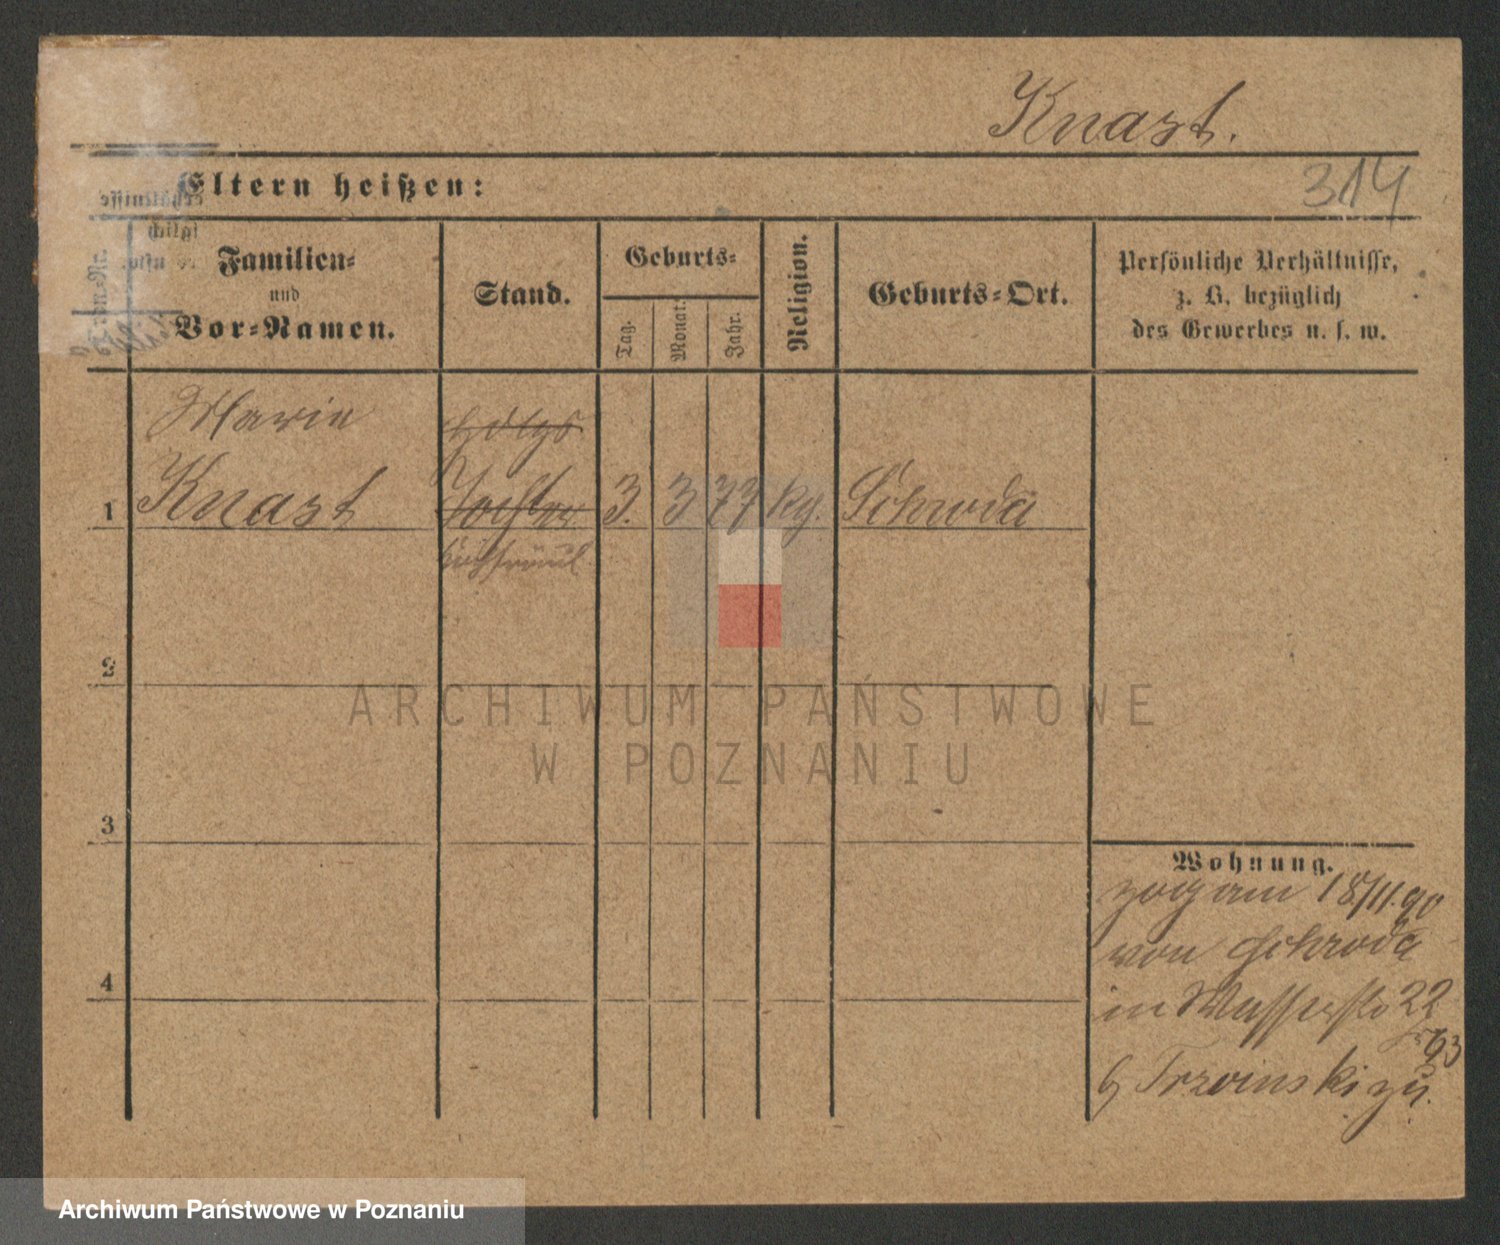 Knast.
314
Eltern heißen:
Familien=
und
Vor=Namen.
Stand.
Geburts=
Tag.
Monat.
Jahr.
Religion.
Geburts=Ort.
Persönliche Verhältnisse,
z. B. bezüglich
des Gewerbes u. s. w.
Marie
1 Knast Tochter 3. 3 77 kg. Schroda
2
3
4
Wohnung.
zog am 18/11.90
von Schroda
in Wasserstr 22
93
b Trzcinski zu.
ARCHIWUM PAŃSTWOWE
W POZNANIU
Archiwum Państwowe w Poznaniu